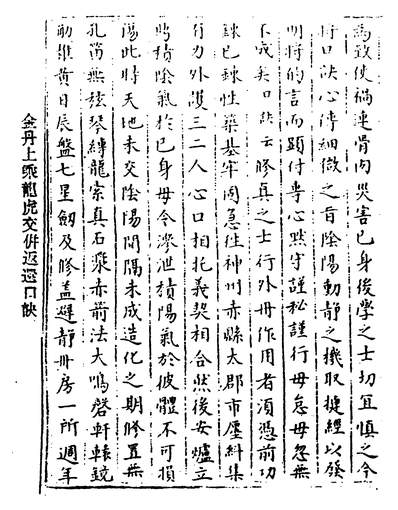 為致使禍連骨肉災害己身後學之士切宜慎之今
將口訣心傳細微之旨陰陽動靜之機取捷經以發
明將的言而顕付専心黙守謹秘謹行毋怠毋忽無
不成矣口訣云修真之士行外丹作用者須憑前功
鍊已錬性築基牢固急徃神州赤縣太郡市廛糾集
有力外護三二人心口相托義契相合然後安爐立
鼎積陰氣於已身毋令滲泄積陽氣於彼體不可損
傷此時天地未交陰陽間隔未成造化之期修置無
孔笛無絃琴縛龍索真石蘂赤前法大鳴磬軒轅鏡
雄黃日辰盤七星劔及修盖避靜丹房一所週年
金丹上乘龍虎交併返還口訣